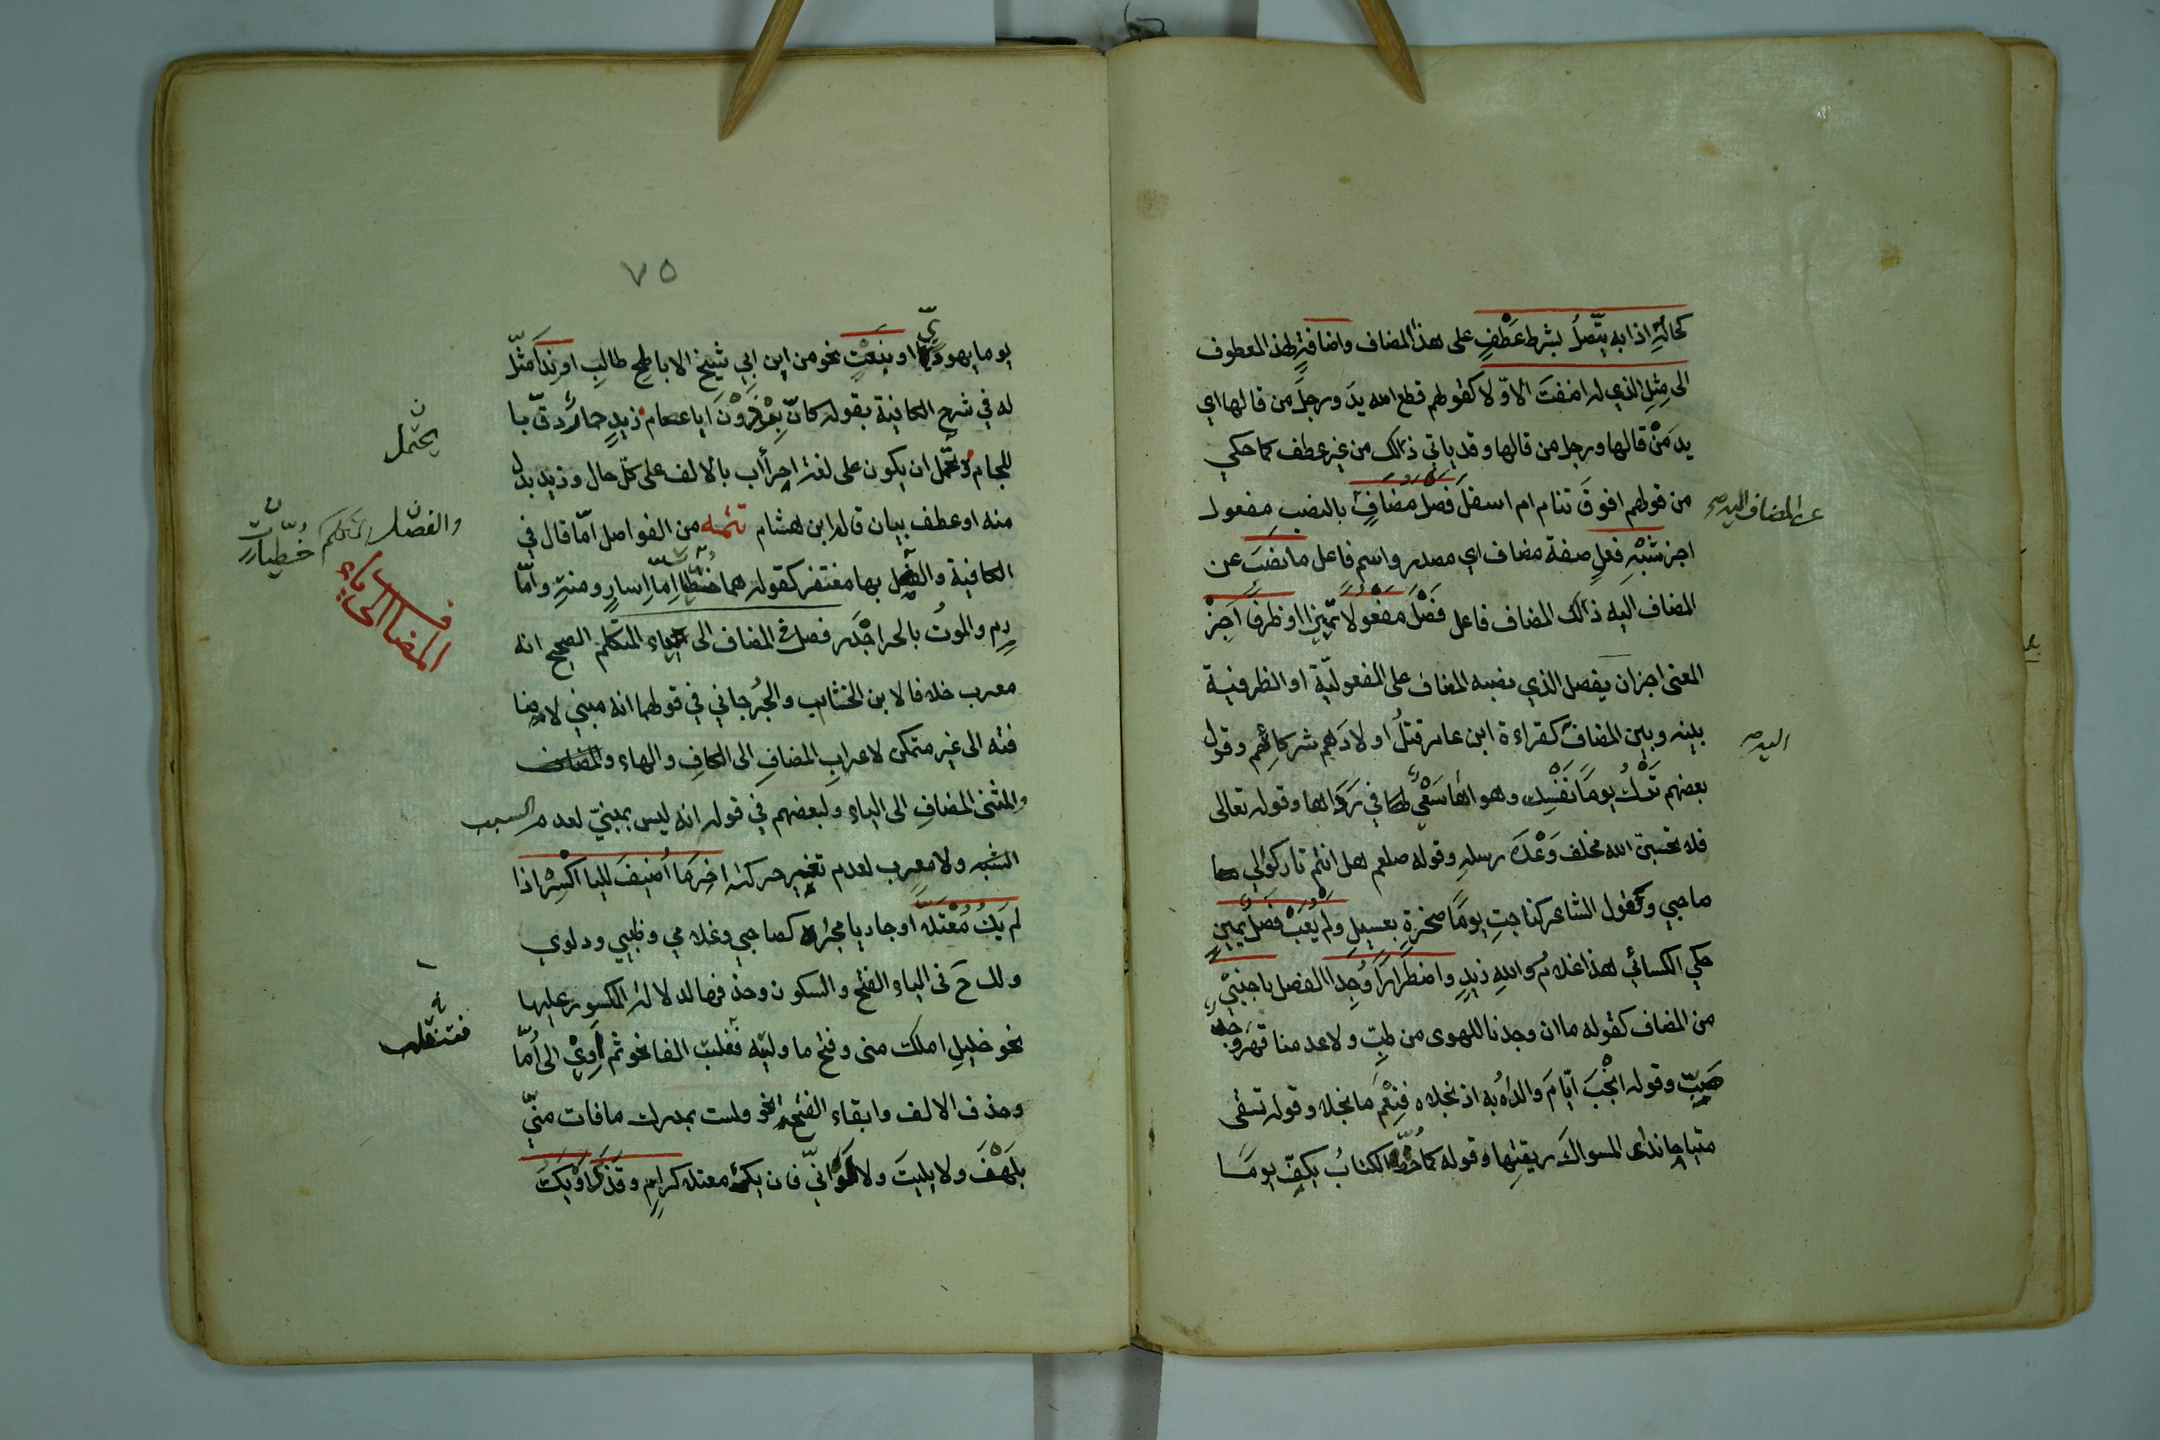 كحالِهِ اذا به يتّصلُ بشرط عَطْفٍ على هذا المضاف واضافةٍ لهذا المعطوف
الى مِثلِ الذي له اضفتَ الاوّلا كقولهم قطع الله يدَ ورجلَ من قالها اي
يدَ مَنْ قالها ورجل من قالها وقد ياتي ذلك من غير عطف كما حكي
من قولهم افوقَ تنام ام اسفلَ فصلَ مضافٍ بالنصب مفعول
على المضاف اليه صح
اجز شبْهِ فعلٍ صفة مضاف اي مصدر واسم فاعل ما نصَبَ عن
المضاف اليه ذلك المضاف فاعل فَصْلَ مَفْعُولاً تمييزا او ظرفاً اَجِزْ
المعنى اجز ان يفصل الذي نصبه المضاف على المفعوليّة او الظرفية
بينه وبين المضاف كقراءة ابن عامر قتلُ اولادَهم شركائِهم وقول
اليه صح
بعضهم تَرْكُ يوماً نَفْسِك وهواها سَعْيٌ لها في رَدَاها وقوله تعالى
فلا تحسبنّ الله مخلف وَعْدَهَ رسلِهِ وقوله صلعم هل انتم تاركوا لي
صاحبي وكقول الشاعر كناحتِ يوماً صخرةٍ بعسيلِ ولم يُعَبْ فصلُ يمينٍ
حكي الكسائي هذا غلامُ واللهِ زيدٍ واضطراراً وُجِدا الفصل باجنبيّ
من المضاف كقوله ما ان وجدنا للهوى من طبِّ ولا عدمنا قهرَ وجدٌ
صَبِّ وقوله انْجَبَ ايّامَ والداهُ به اذ نجلاه فنِعْمَ ما نجلا وقوله تسقى
متياحا ندى المسواكَ ريقتِها وقوله كما خُطَّ الكتابُ بكفِّ يومًا
٧٥
يوما يهوديٍّ او بنعتٍ نحو من ابن ابي شيخ الاباطح طالبِ او ندا مثّل
له في شرح الكافية بقوله كانّ بِرْذَوْنَ ابا عصام زيدٍ حمارٌ دقّ با
للجام ويحتمل ان يكون على لغة اجراء اب بالالف على كلّ حال وزيد بدل
يحتمل ن
منه او عطف بيان قاله ابن هشام تتمّه من الفواصل امّا قال في
الكافية والفصل بها مغتفر كقوله هما خطّتا إما إسارٍ ومنةٍ وامّا
والفصل ن
دمٍ والموتُ بالحر اجْدَر فصل في المضاف الى ياء المتكلم الصحيح انه
فصل في المضاف الى ياء المتكلم
معرب خلافا لابن الخشّاب والجُرجاني في قولهما انه مبني لاضا
فته الى غير متمكن لاعرابِ المضافِ الى الكافِ والهاء
والمثنى المضافِ الى الياء ولبعضهم في قوله انه ليس بمبنيّ لعدم السبب
الشبه ولا معرب لعدم تغيير حركته اخِرَ ما اُضيفَ لليا اكْسِرْ اذا
لم يَكُ مُعْتَلاًّ او جاريا مجراه كصاحبي وغلامي وظبيي ودلوي
ولك حَ فى الياء الفتح والسكون وحذفها لدلالة الكسور عليها
نحو خليلِ املك منى وفتح ما وليَته فتقلب الفا نحو ثم آوِيْ الى اُمّا
فتنقلب
وحذف الالف وابقاء الفتح نحو ولست بمدرك ما فات منّي
بلَهْفَ ولا بليتَ ولا لَوْ انّي فان يك معتلا كرامٍ وقَذَى اوْ يَكُ